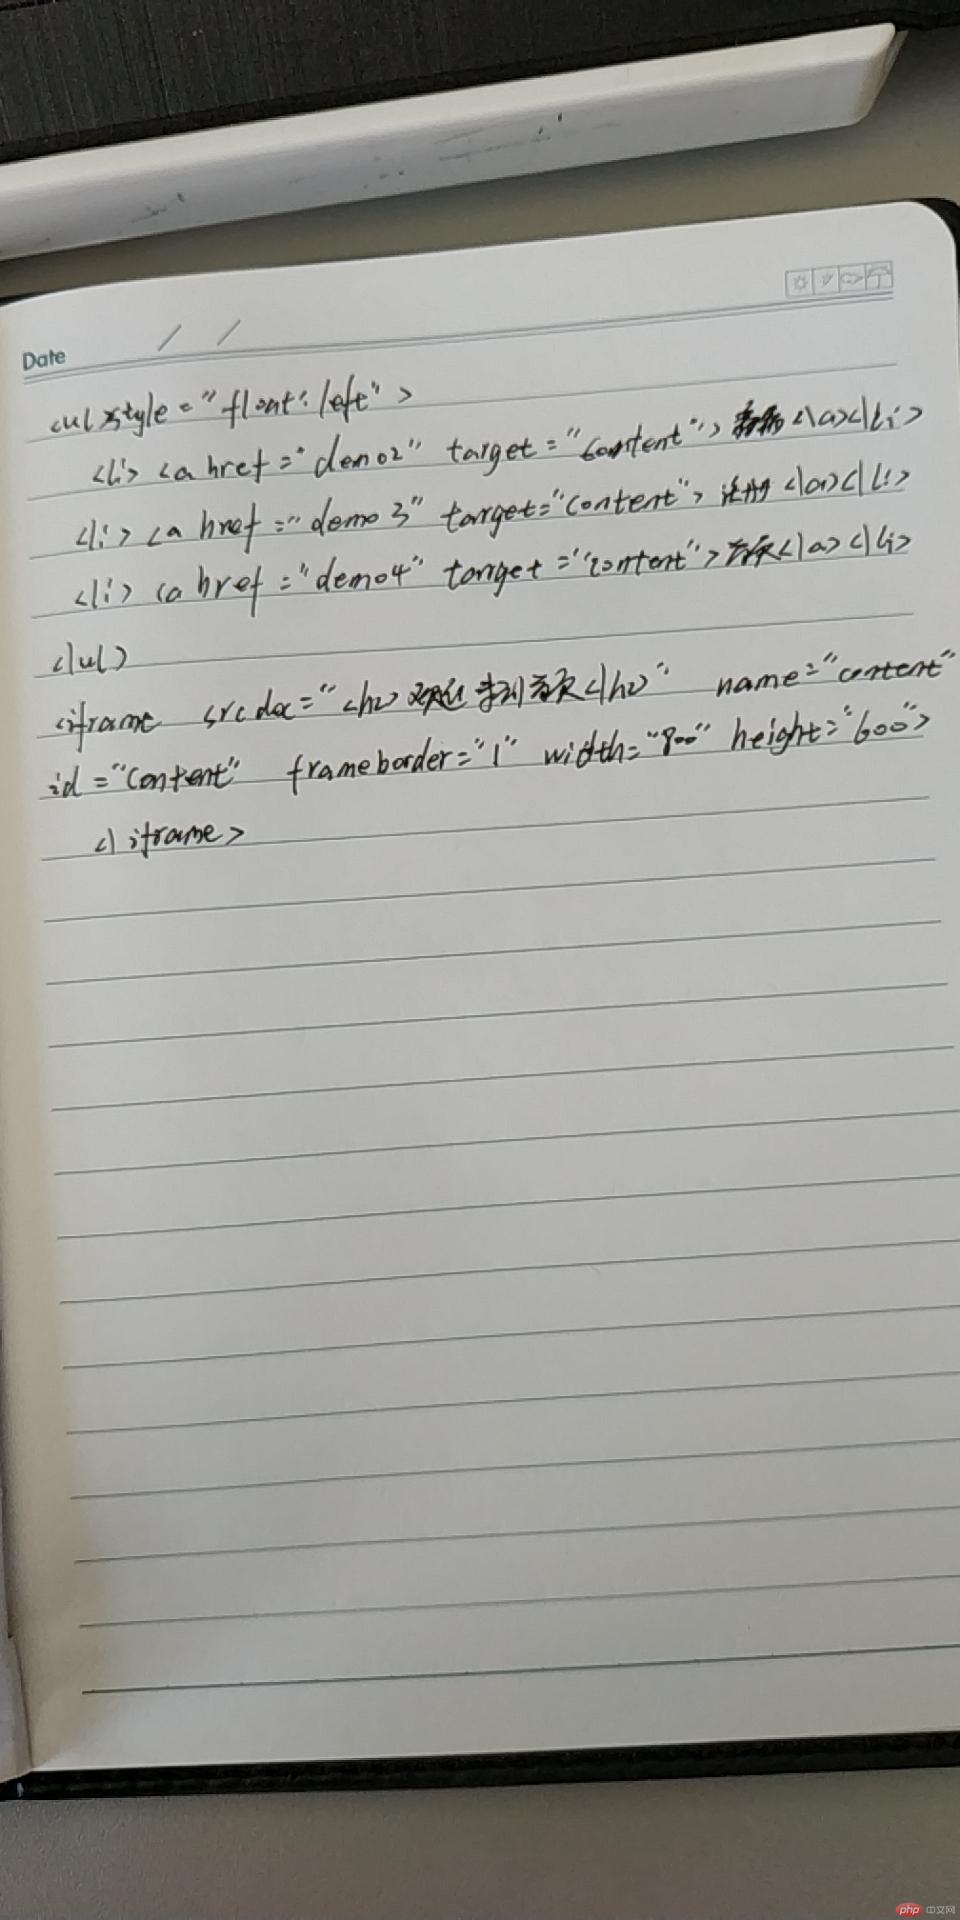 Date / /
<ul style="float:left">
<li> <a href="demo2" target="content"> </a></li>
<li> <a href="demo3" target="content"> 注册 </a></li>
<li> <a href="demo4" target="content"> 首页</a></li>
</ul>
<iframe srcdoc="<h2>欢迎来到首页</h2>" name="content"
id="content" frameborder="1" width="800" height="600">
</iframe>
php 中文网